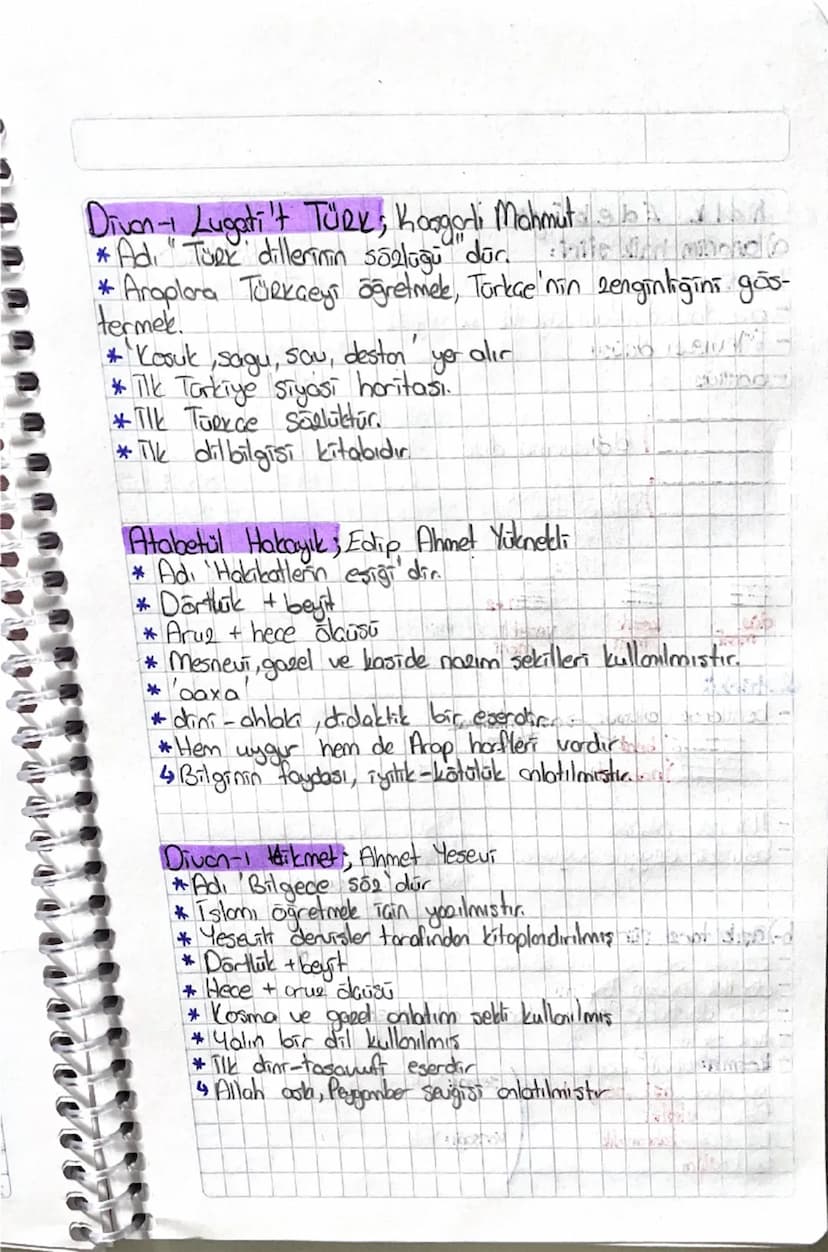 Divan-ı Lugati't Türk; Kaşgarlı Mahmut
* Adı "Türk dillerinin sözlüğü" dür.
* Araplara Türkçeyi öğretmek, Türkçe'nin zenginliğini gös-
termek.
* 'Koşuk, sagu, sav, destan' yer alır
* İlk Türkiye siyasi haritası.
* İlk Türkçe sözlüktür.
* İlk dilbilgisi kitabıdır
Atabetül Hakayık; Edip Ahmet Yükneki
* Adı 'Hakikatlerin eşiği' dir.
* Dörtlük + beyit
* Aruz + hece ölçüsü
* Mesnevi, gazel ve kaside nazım şekilleri kullanılmıştır.
* 'aaxa'
* dini - ahlaki, didaktik bir eserdir.
* Hem uygur hem de Arap harfleri vardır
↳ Bilginin faydası, iyilik-kötülük anlatılmıştır.
Divan-ı Hikmet; Ahmet Yesevi
* Adı 'Bilgece söz' dür
* İslamı öğretmek için yazılmıştır.
* Yesevilik dervişler tarafından kitaplandırılmış
* Dörtlük + beyit
* Hece + aruz ölçüsü
* Koşma ve gazel anlatım şekli kullanılmış
* Yalın bir dil kullanılmış
* İlk dini-tasavvufi eserdir
↳ Allah aşkı, Peygamber sevgisi anlatılmıştır